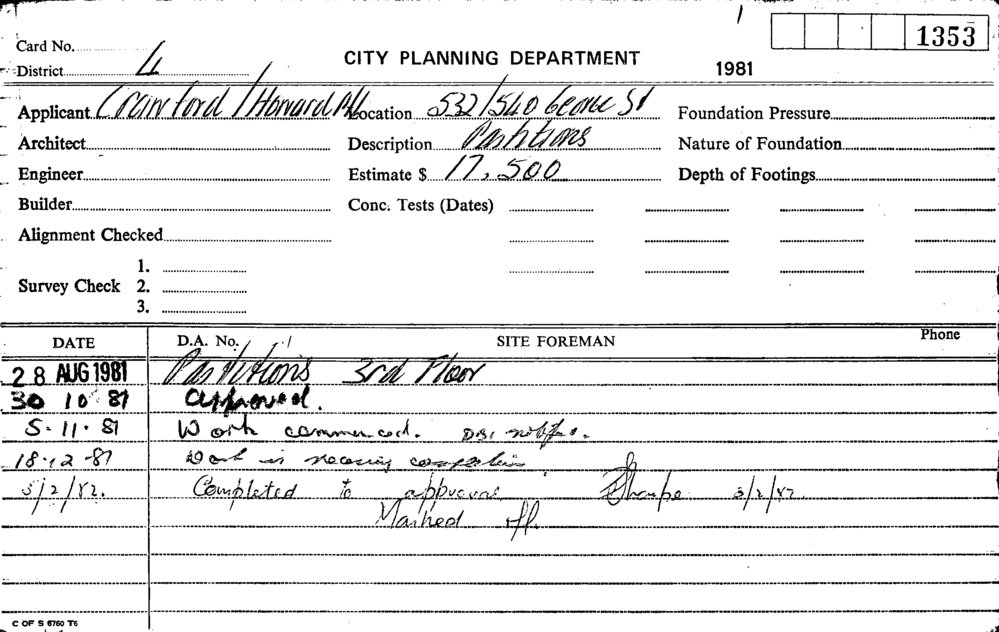 1353
Card No.
CITY PLANNING DEPARTMENT
1981
District 4
Applicant Crawford / Howard P/L Location 532/540 George St Foundation Pressure
Architect Description Partitions Nature of Foundation
Engineer Estimate $ 17,500 Depth of Footings
Builder Conc. Tests (Dates)
Alignment Checked
1.
Survey Check 2.
3.
DATE D.A. No. SITE FOREMAN Phone
28 AUG 1981 Partitions 3rd Floor
30 10 81 approved.
5.11.81 Work commenced.
18.12.81 Work is nearing completion
3/2/82. Completed to approval 3/2/82.
Marked off.
C OF S 6760 T6